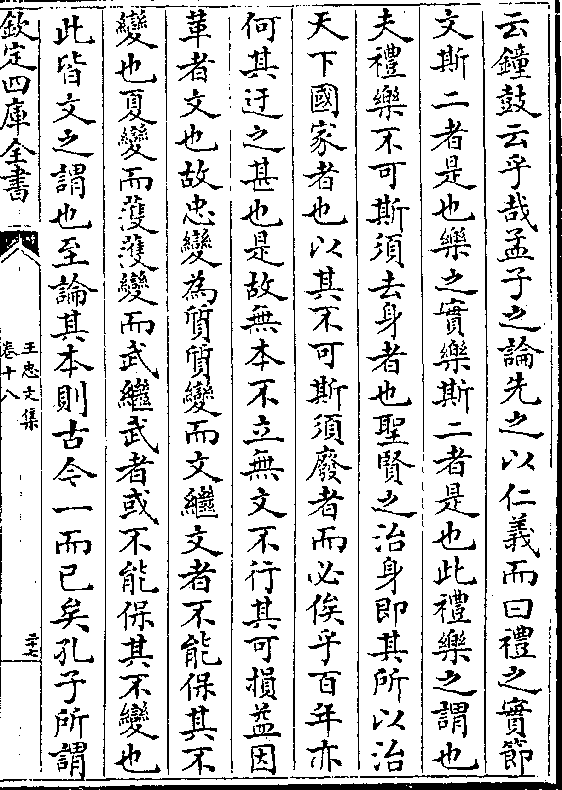 云鐘鼓云乎哉孟子之論先之以仁義而曰禮之實節
文斯二者是也樂之實樂斯二者是也此禮樂之謂也
夫禮樂不可斯須去身者也聖賢之治身即其所以治
天下國家者也以其不可斯須廢者而必俟乎百年亦
何其迂之甚也是故無本不立無文不行其可損益因
革者文也故忠變為質質變而文繼文者不能保其不
變也夏變而濩濩變而武繼武者或不能保其不變也
此皆文之謂也至論其本則古今一而已矣孔子所謂
欽定四庫全書
王忠文集
卷十八
二十七